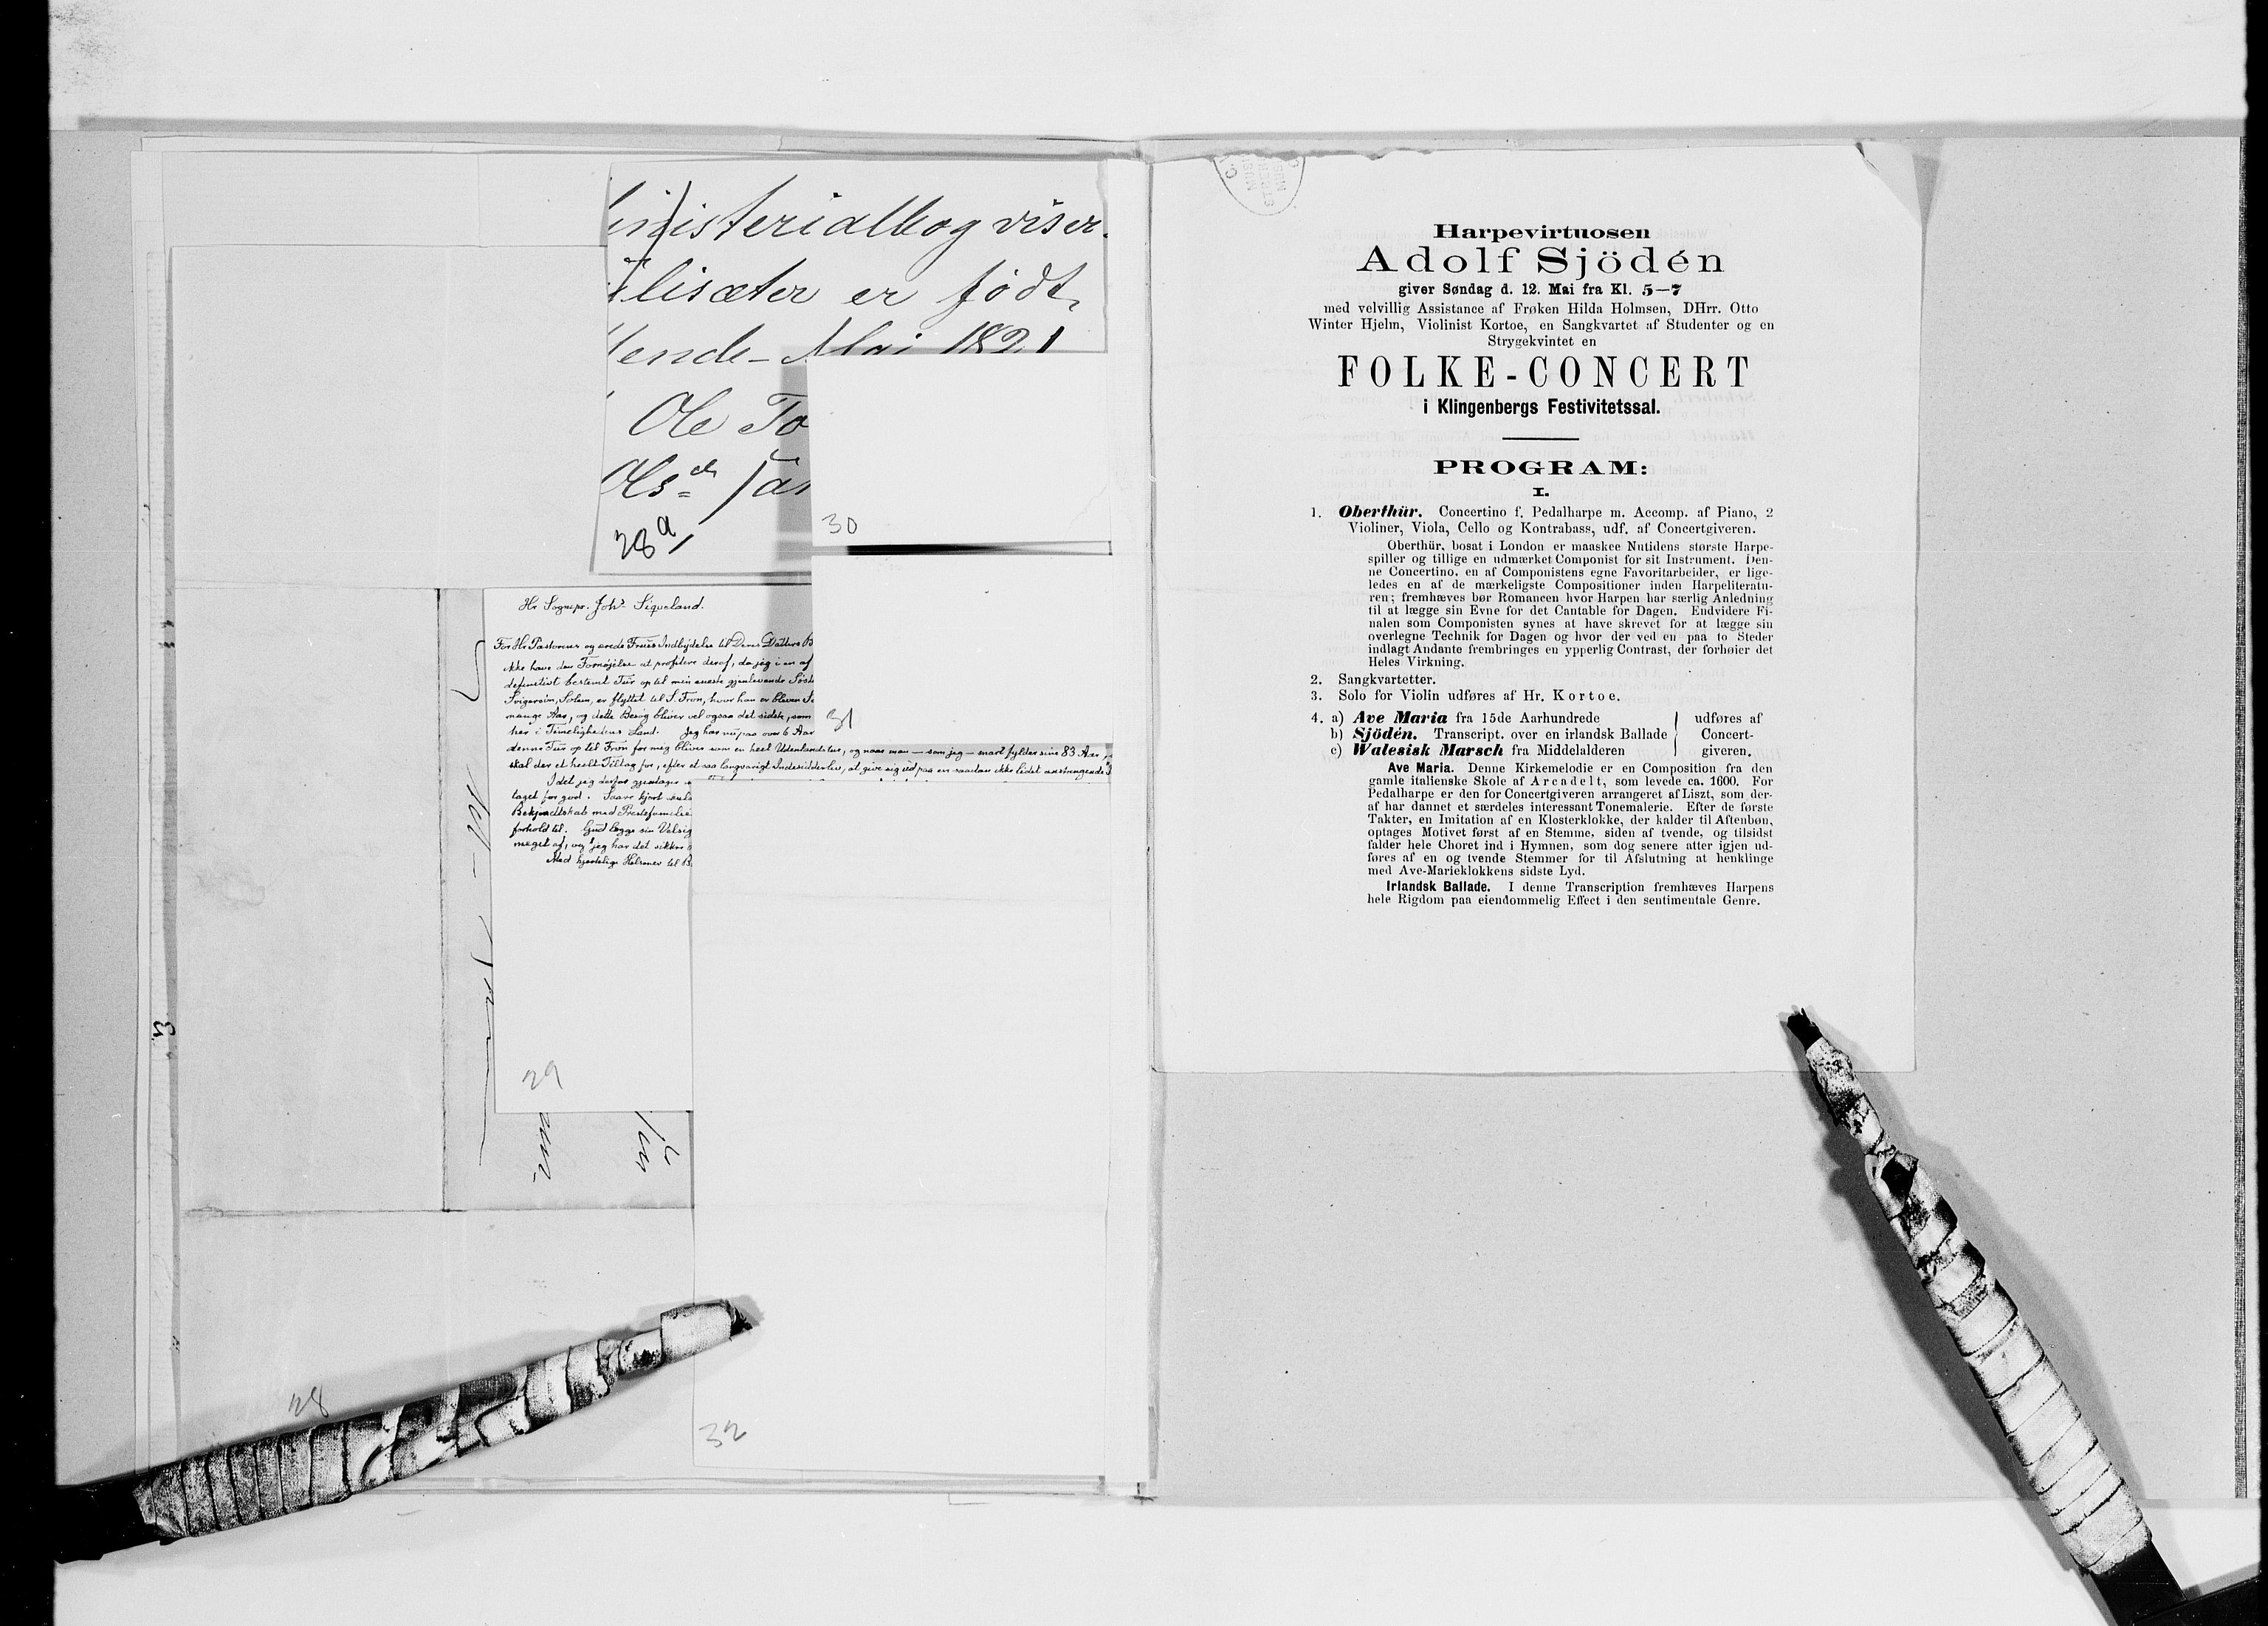 inisterialbog viser
lisæter er født
ende Mai 1821
Ole To
Ols
28a
30
Hr Sognepr. Joh.s Siqveland.
For Hr Pastorens og ærede Frues Indbydelse til Deres Datters B
ikke have den Fornøjelse at profitere deraf, da jeg i en af
definitivt bestemt Tur op til min eneste gjenlevende Søst
Svigersøn, Solem, er flyttet til S. Fron, hvor han er bleven S
mange Aar, og dette Besøg bliver vel ogsaa det sidste, som
her i Timelighedens Land. Jeg har nu paa over 6 Aar
denne Tur op til Fron for mig bliver som en heel Udenlandstur, og naar man — som jeg — snart fylder sine 83 Aar,
skal der et heelt Tiltag for, efter et saa langvarigt Indesidderliv, at give sig ud paa en saadan ikke lidet anstrengende
Idet jeg derfor gjentager
taget for god.
Bekjendtskab med Prestefamilie
forhold til. Gud lægge sin Velsig
meget af, og jeg har det sikkre
Med hjertelige Hilsener til
29
31
32
28
Harpevirtuosen
Adolf Sjödén
giver Søndag d. 12. Mai fra Kl. 5—7
med velvillig Assistance af Frøken Hilda Holmsen, DHrr. Otto
Winter Hjelm, Violinist Kortoe, en Sangkvartet af Studenter og en
Strygekvintet en
FOLKE-CONCERT
i Klingenbergs Festivitetssal.
PROGRAM:
I.
1. Oberthür. Concertino f. Pedalharpe m. Accomp. af Piano, 2
Violiner, Viola, Cello og Kontrabass, udf. af Concertgiveren.
Oberthür, bosat i London er maaskee Nutidens største Harpe-
spiller og tillige en udmærket Componist for sit Instrument. Den-
ne Concertino, en af Componistens egne Favoritarbeider, er lige-
ledes en af de mærkeligste Compositioner inden Harpeliteratu-
ren; fremhæves bør Romancen hvor Harpen har særlig Anledning
til at lægge sin Evne for det Cantable for Dagen. Endvidere Fi-
nalen som Componisten synes at have skrevet for at lægge sin
overlegne Technik for Dagen og hvor der ved en paa to Steder
indlagt Andante frembringes en ypperlig Contrast, der forhøier det
Heles Virkning.
2. Sangkvartetter.
3. Solo for Violin udføres af Hr. Kortoe.
4. a) Ave Maria fra 15de Aarhundrede
b) Sjödén. Transcript. over en irlandsk Ballade
c) Walesisk Marsch fra Middelalderen
udføres af
Concert-
giveren.
Ave Maria. Denne Kirkemelodie er en Composition fra den
gamle italienske Skole af Arcadelt, som levede ca. 1600. For
Pedalharpe er den for Concertgiveren arrangeret af Liszt, som der-
af har dannet et særdeles interessant Tonemalerie. Efter de første
Takter, en Imitation af en Klosterklokke, der kalder til Aftenbøn,
optages Motivet først af en Stemme, siden af tvende, og tilsidst
falder hele Choret ind i Hymnen, som dog senere atter igjen ud-
føres af en og tvende Stemmer for til Afslutning at henklinge
med Ave-Marieklokkens sidste Lyd.
Irlandsk Ballade. I denne Transcription fremhæves Harpens
hele Rigdom paa eiendommelig Effect i den sentimentale Genre.